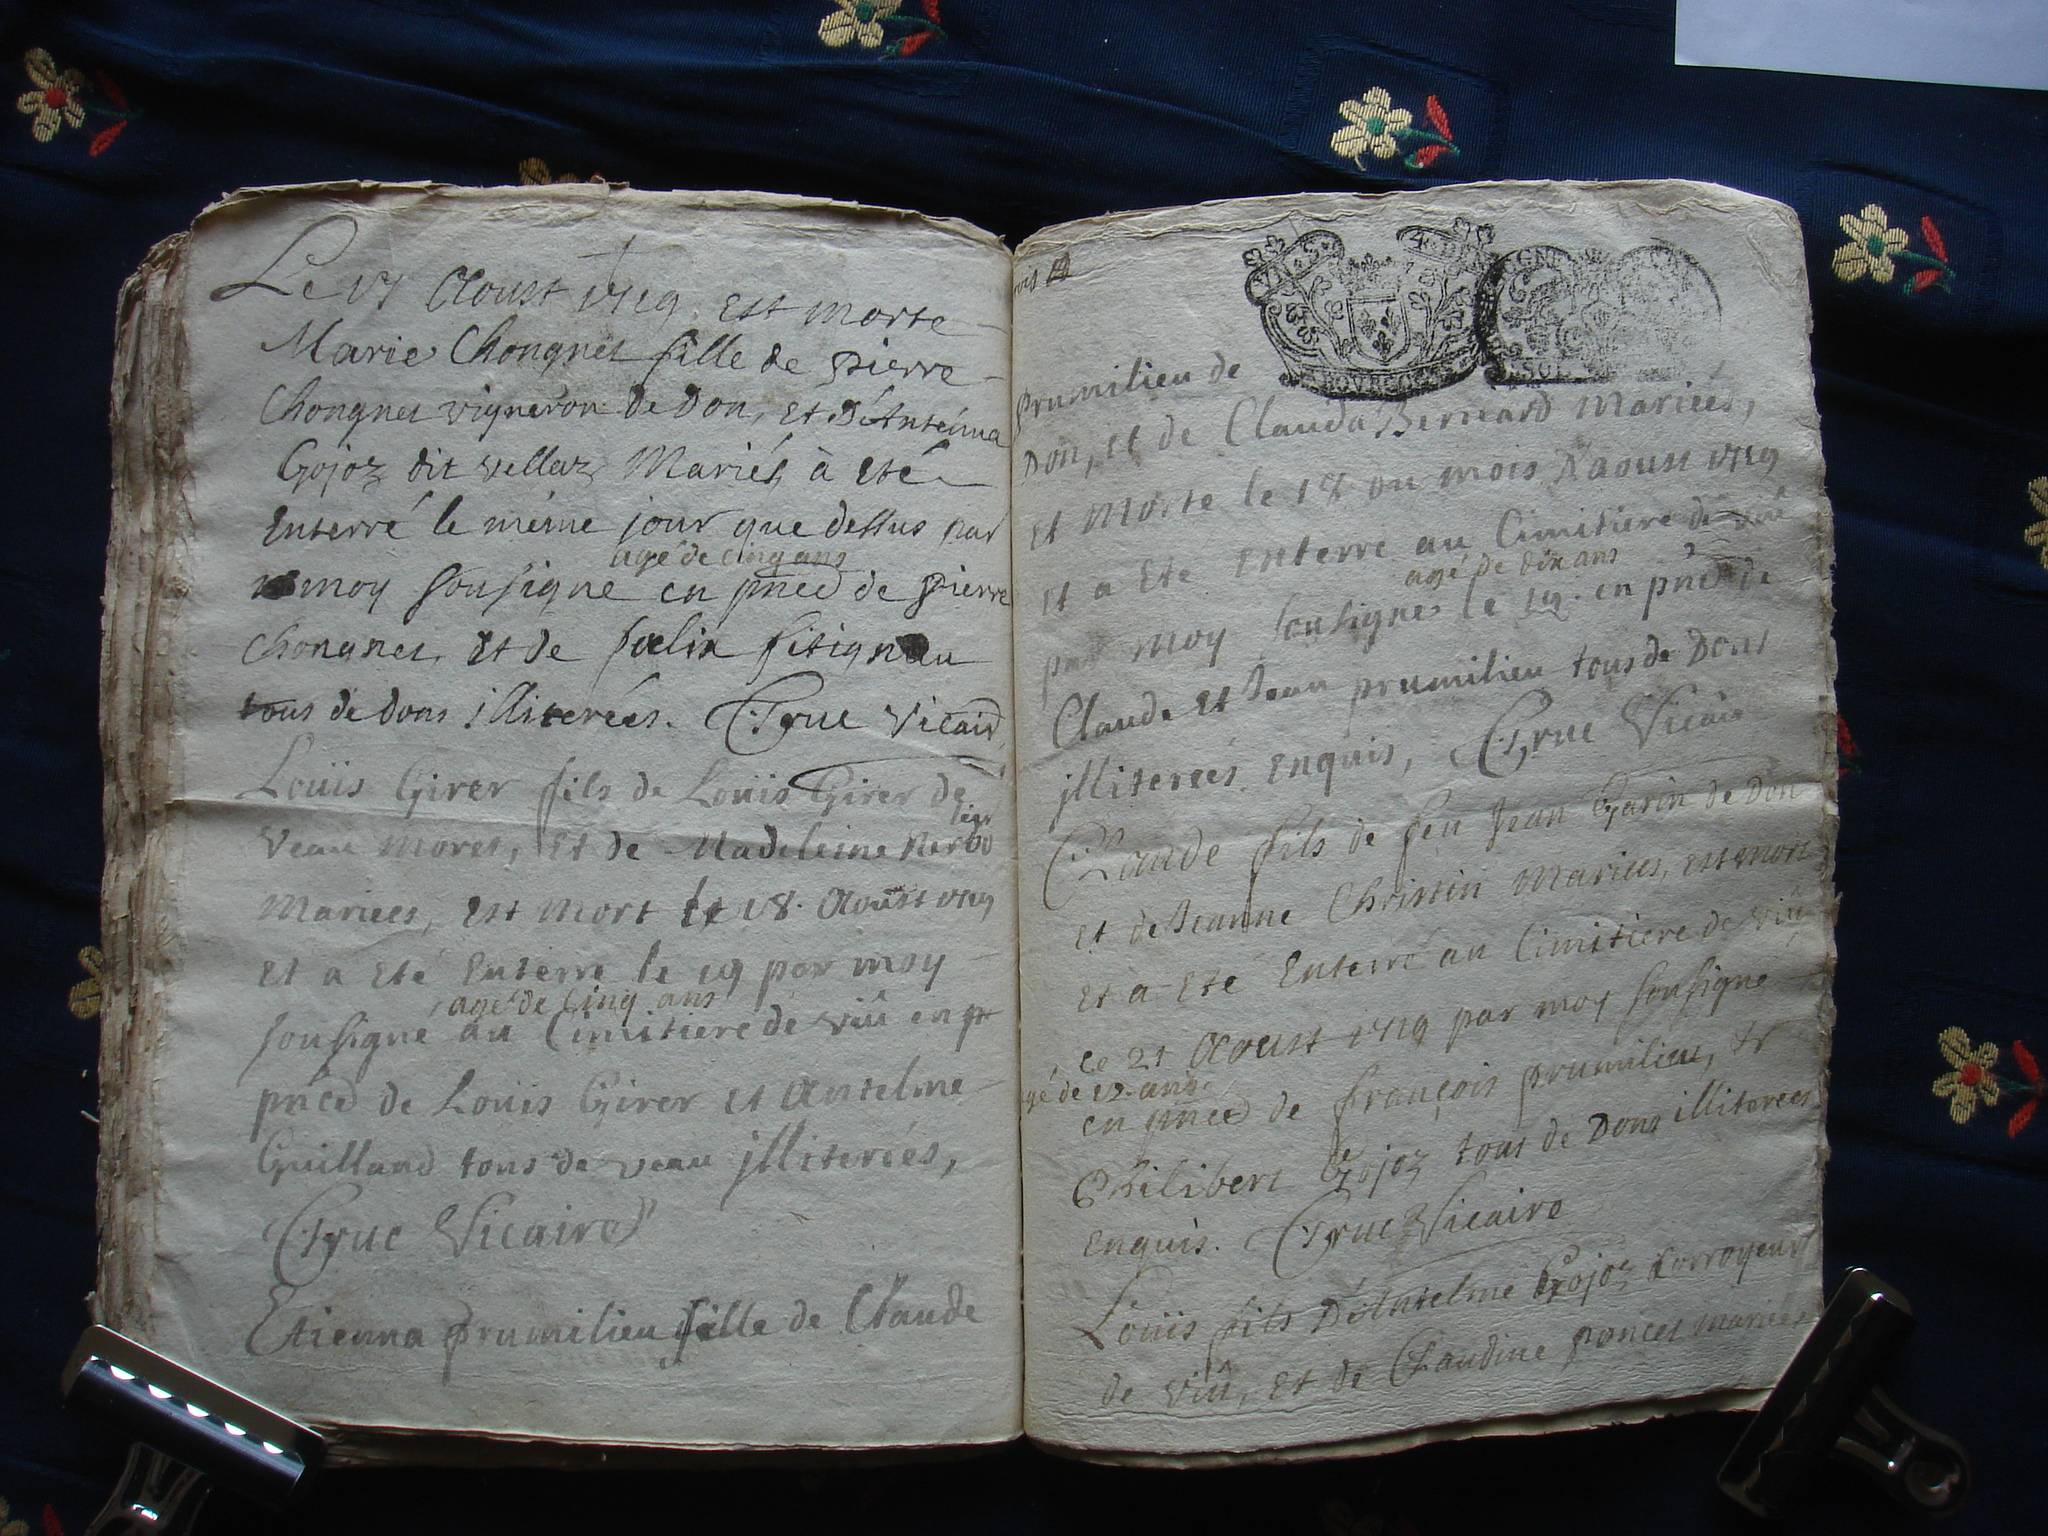 Le 17 Aoust 1719. est morte
Marie Chongnet fille de pierre
Chongnet vigneron de Don, et d'Antelma
Gojoz dit vellaz Mariés, à eté
Enterré le même jour que dessus par
agé de cinq ans
moy sousigné en pnce de pierre
Chongnet, et de foelix fitignau
tous de dons illiterées. Gruc Vicair
Loüis Girer fils de Loüis Girer de
Veau Moret, et de Madeleine
Mariees, est mort le 18. Aoust 1719
et a eté Enterre le 19 par moy
agé de Cinq ans
sousigné au Cimitiere de viû en
pnce de Loüis Girer et Antelme
Guilland tous de veau jlliterées,
Gruc Vicaire
Etienna prumilieu fille de Claude
prumilieu de
Don, et de Clauda Bernard Mariées,
et Morte le 18 du mois d'aoust 1719
et a eté enterré au Cimitiere de viû
agé de dix ans
par moy sousigné le 19. en pnce de
Claude et Jean prumilieu tous de Dons
jlliterées enquis, Gruc Vicair
Claude fils de feu Jean Garin de Don
et de Jeanne Christin Mariees, est mort
et a eté Enterré au Cimitiere de viû
le 21 Aoust 1719 par moy sousigné
gé de 12. ans.
en pnce de françois prumilieu, et
Philibert Gojoz tous de Dons illiterees
enquis. Gruc Vicaire
Loüis fils d'Antelme Gojoz Corroyeur
de viû, et de Claudine poncet mariées